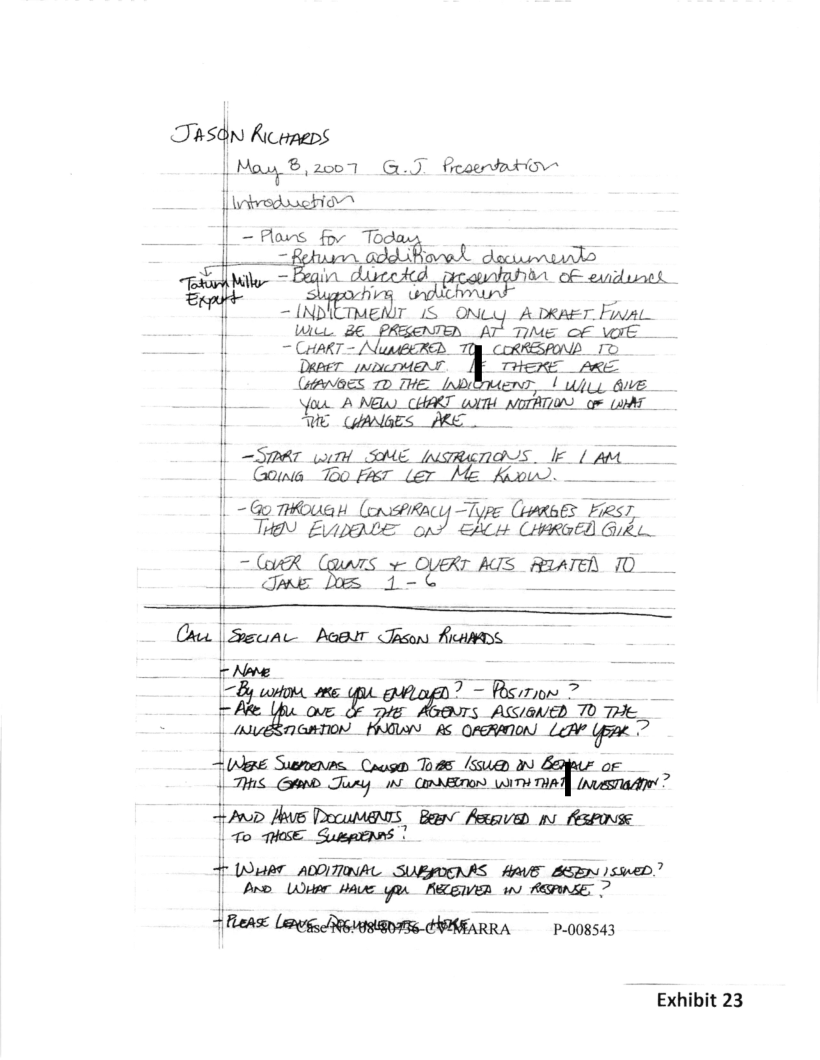 JASON RICHARDS
May 8, 2007 G.J. Presentation
Introduction
- Plans for Today
- Return additional documents
Tatum Miller - Begin directed presentation of evidence
Expert supporting indictment
- INDICTMENT IS ONLY A DRAFT. FINAL
WILL BE PRESENTED AT TIME OF VOTE
- CHART - NUMBERED TO CORRESPOND TO
DRAFT INDICTMENT. IF THERE ARE
CHANGES TO THE INDICTMENT, I WILL GIVE
YOU A NEW CHART WITH NOTATION OF WHAT
THE CHANGES ARE.
- START WITH SOME INSTRUCTIONS. IF I AM
GOING TOO FAST LET ME KNOW.
- GO THROUGH CONSPIRACY-TYPE CHARGES FIRST,
THEN EVIDENCE ON EACH CHARGED GIRL
- COVER COUNTS + OVERT ACTS RELATED TO
JANE DOES 1-6
CALL SPECIAL AGENT JASON RICHARDS
- NAME
- BY WHOM ARE YOU EMPLOYED? - POSITION?
- ARE YOU ONE OF THE AGENTS ASSIGNED TO THE
INVESTIGATION KNOWN AS OPERATION LEAP YEAR?
- WERE SUBPOENAS CAUSED TO BE ISSUED ON BEHALF OF
THIS GRAND JURY IN CONNECTION WITH THAT INVESTIGATION?
- AND HAVE DOCUMENTS BEEN RECEIVED IN RESPONSE
TO THOSE SUBPOENAS?
- WHAT ADDITIONAL SUBPOENAS HAVE BEEN ISSUED?
AND WHAT HAVE YOU RECEIVED IN RESPONSE?
- PLEASE LEAVE DOCUMENTS HERE
Case No. 08-80736-CV-MARRA P-008543
Exhibit 23